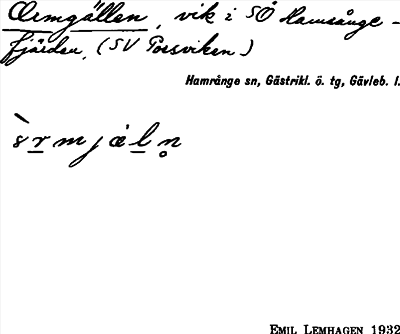 Ormgällen, vik i SÖ Hamrånge-
fjärden, (SV Porsviken)
Hamrånge sn, Gästrikl. ö. tg, Gävleb. l.
EMIL LEMHAGEN 1932